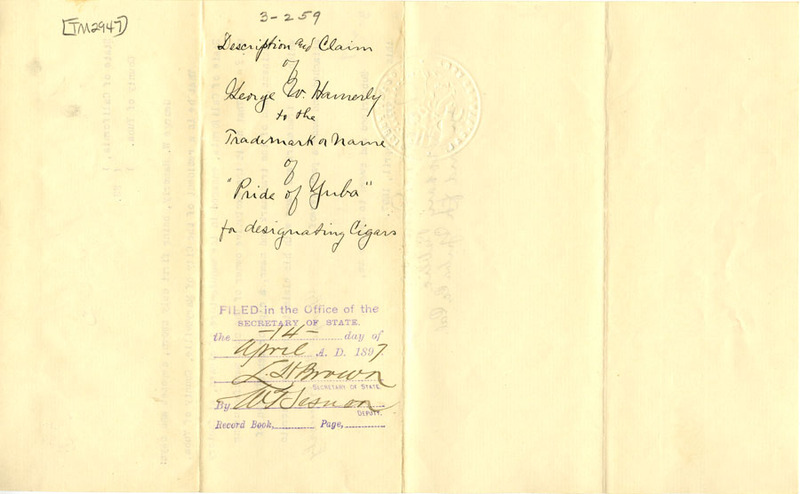 [TM2947]
3-259
Description and Claim
of
George W. Hamerly
to the
Trademark or Name
of
"Pride of Yuba"
for designating Cigars
FILED in the Office of the
SECRETARY OF STATE.
the -14- day of
April A. D. 1897
L. H. Brown
SECRETARY OF STATE.
By W. T. Sesnon
DEPUTY.
Record Book, Page,